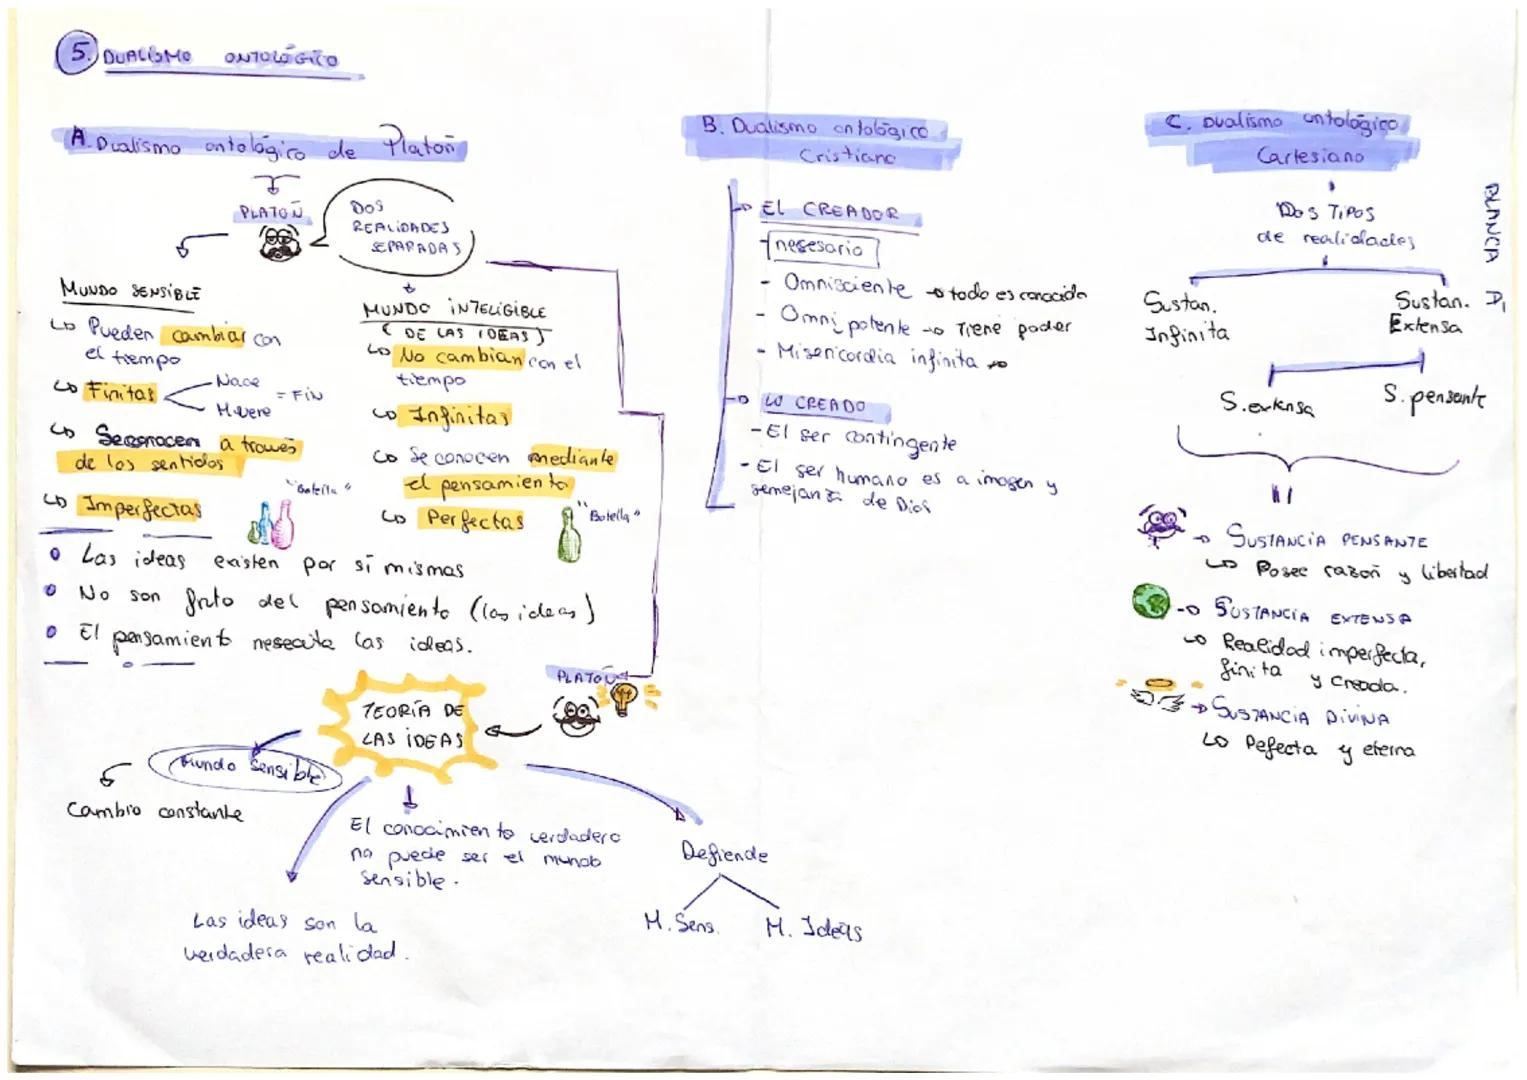 5. DUALISMO ONTOLÓGICO
A. Dualismo ontológico de Platón
PLATÓN
DOS
REALIDADES
SEPARADAS
MUNDO SENSIBLE
Pueden cambiar con
el tiempo
Finitas
Nace
Muere
= FIN
Se conocen a través
de los sentidos
"Botella"
Imperfectas
MUNDO INTELIGIBLE
(DE LAS IDEAS)
No cambian con el
tiempo
Infinitas
Se conocen mediante
el pensamiento
Perfectas
"Botella"
Las ideas existen por sí mismas
No son fruto del pensamiento (las ideas)
El pensamiento nesecita las ideas.
PLATÓN
TEORÍA DE
LAS IDEAS
Mundo Sensible
Cambio constante
Las ideas son la
verdadera realidad.
El conocimiento verdadero
no puede ser el mundo
sensible.
Defiende
M. Sens.
M. Ideas
B. Dualismo ontológico
Cristiano
EL CREADOR
- nesesario
- Omnisciente → todo es conocido
- Omnipotente → Tiene poder
- Misericordia infinita →
LO CREADO
- El ser contingente
- El ser humano es a imagen y
semejanza de Dios
C. Dualismo ontológico
Cartesiano
DOS TIPOS
de realidades
Sustan.
Infinita
Sustan.
Extensa
S. extensa
S. pensante
SUSTANCIA PENSANTE
Posee razón y libertad
SUSTANCIA EXTENSA
Realidad imperfecta,
finita y creada.
SUSTANCIA DIVINA
Pefecta y eterna
BLANCA D,